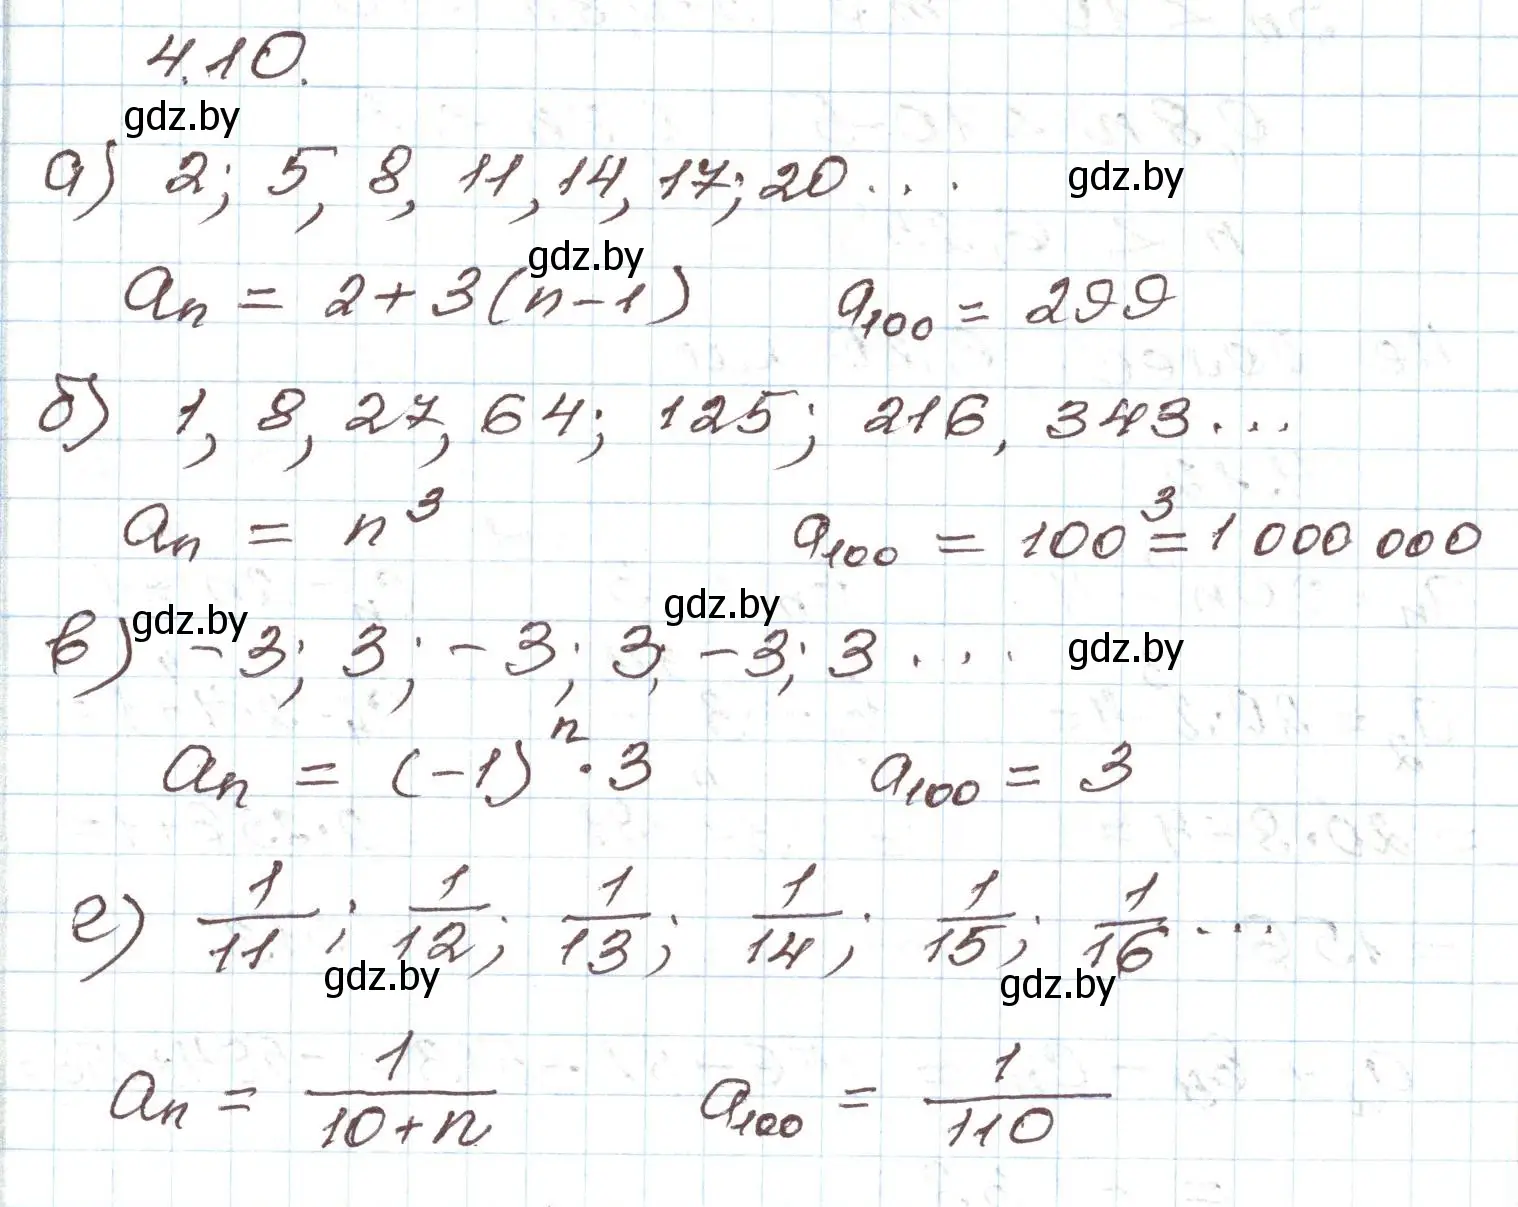 4.10.
gdz.by
а) 2; 5, 8, 11, 14, 17; 20 ...
gdz.by
gdz.by
aₙ = 2+3(n-1) a₁₀₀ = 299
б) 1, 8, 27, 64; 125; 216, 343...
aₙ = n³ a₁₀₀ = 100³ = 1 000 000
gdz.by
gdz.by
в) -3; 3; -3; 3; -3; 3 ...
gdz.by
aₙ = (-1)ⁿ · 3 a₁₀₀ = 3
г) 1/11; 1/12; 1/13; 1/14; 1/15; 1/16 ...
gdz.by
gdz.by
aₙ = 1/(10+n) a₁₀₀ = 1/110